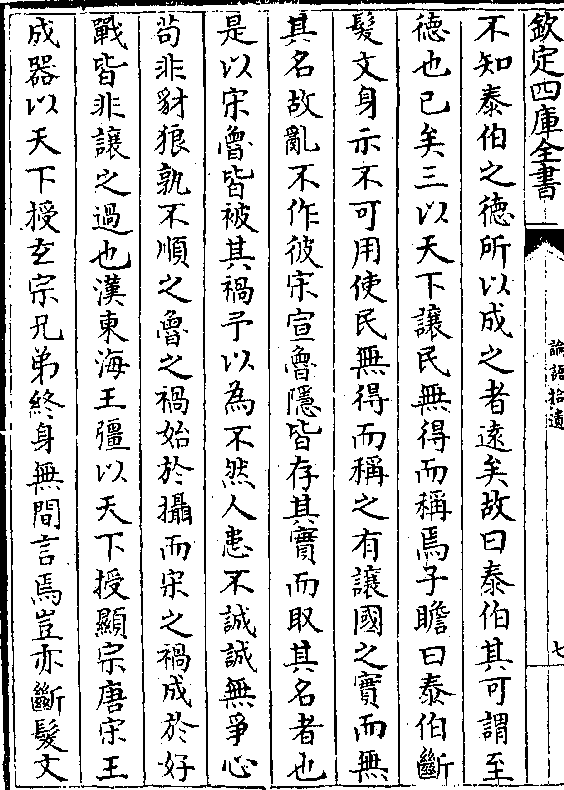 欽定四庫全書
論語拾遺
七
不知泰伯之徳所以成之者逺矣故曰泰伯其可謂至
徳也已矣三以天下讓民無得而稱焉子瞻曰泰伯斷
髮文身示不可用使民無得而稱之有讓國之實而無
其名故亂不作彼宋宣魯隱皆存其實而取其名者也
是以宋魯皆被其禍予以為不然人患不誠誠無爭心
茍非豺狼孰不順之魯之禍始於攝而宋之禍成於好
戰皆非讓之過也漢東海王彊以天下授顯宗唐宋王
成器以天下授𤣥宗兄弟終身無間言焉豈亦斷髮文